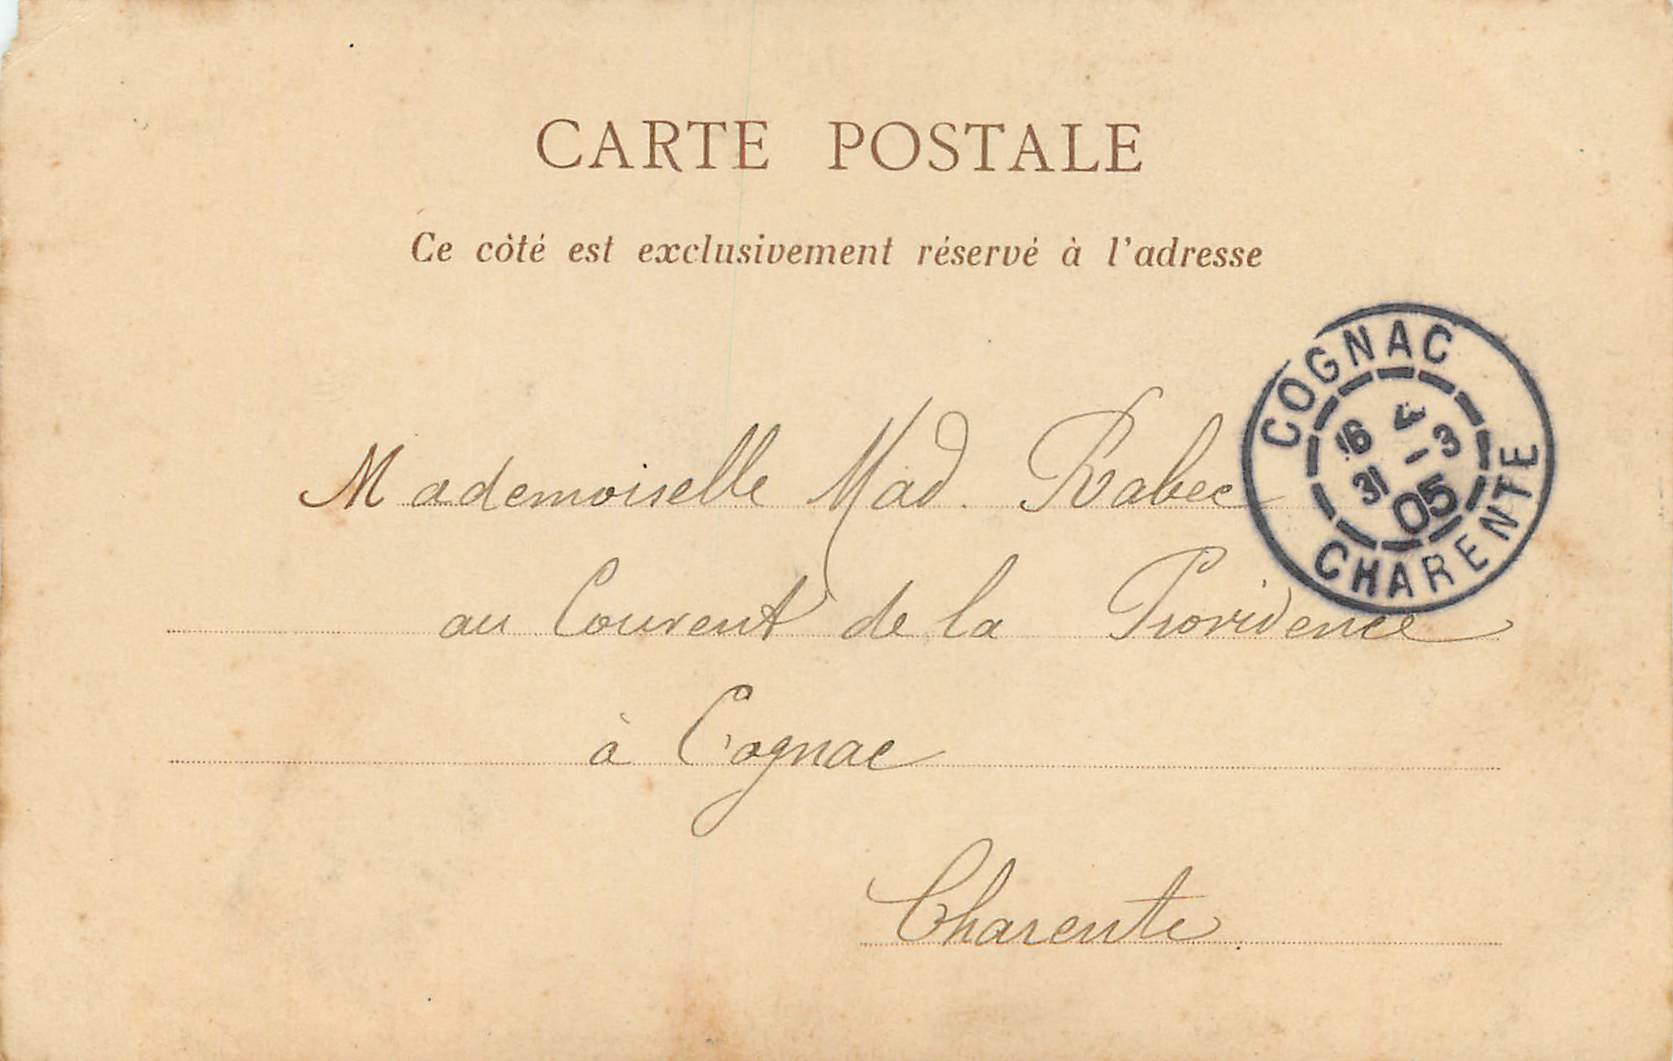 CARTE POSTALE
Ce côté est exclusivement réservé à l'adresse
COGNAC
16 4
31 -3
05
CHARENTE
Mademoiselle Mad. Rabec
au Couvent de la Providence
à Cognac
Charente